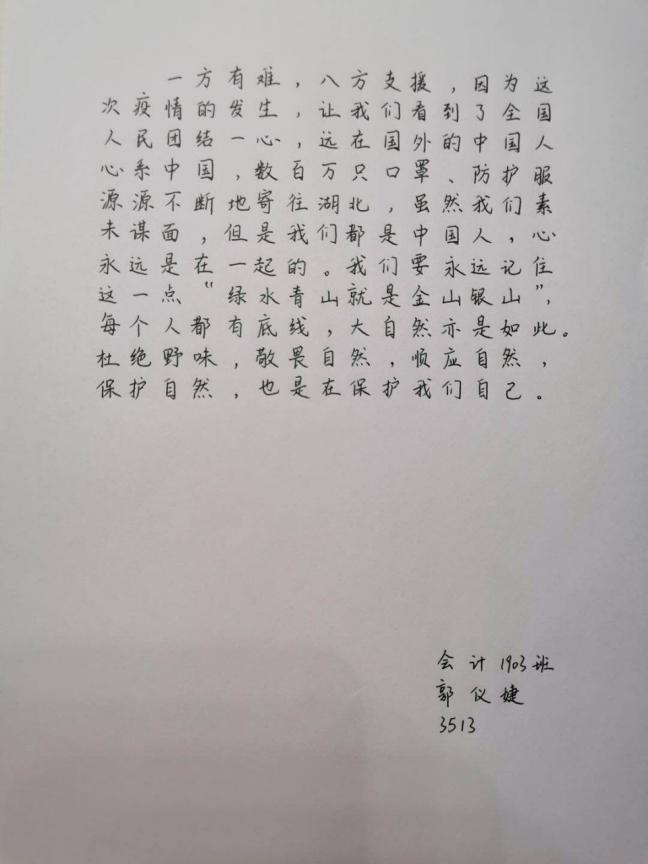 一方有难，八方支援，因为这
次疫情的发生，让我们看到了全国
人民团结一心，远在国外的中国人
心系中国，数百万只口罩、防护服
源源不断地寄往湖北，虽然我们素
未谋面，但是我们都是中国人，心
永远是在一起的。我们要永远记住
这一点“绿水青山就是金山银山”，
每个人都有底线，大自然亦是如此。
杜绝野味，敬畏自然，顺应自然，
保护自然，也是在保护我们自己。
会计1903班
郭仪婕
3513